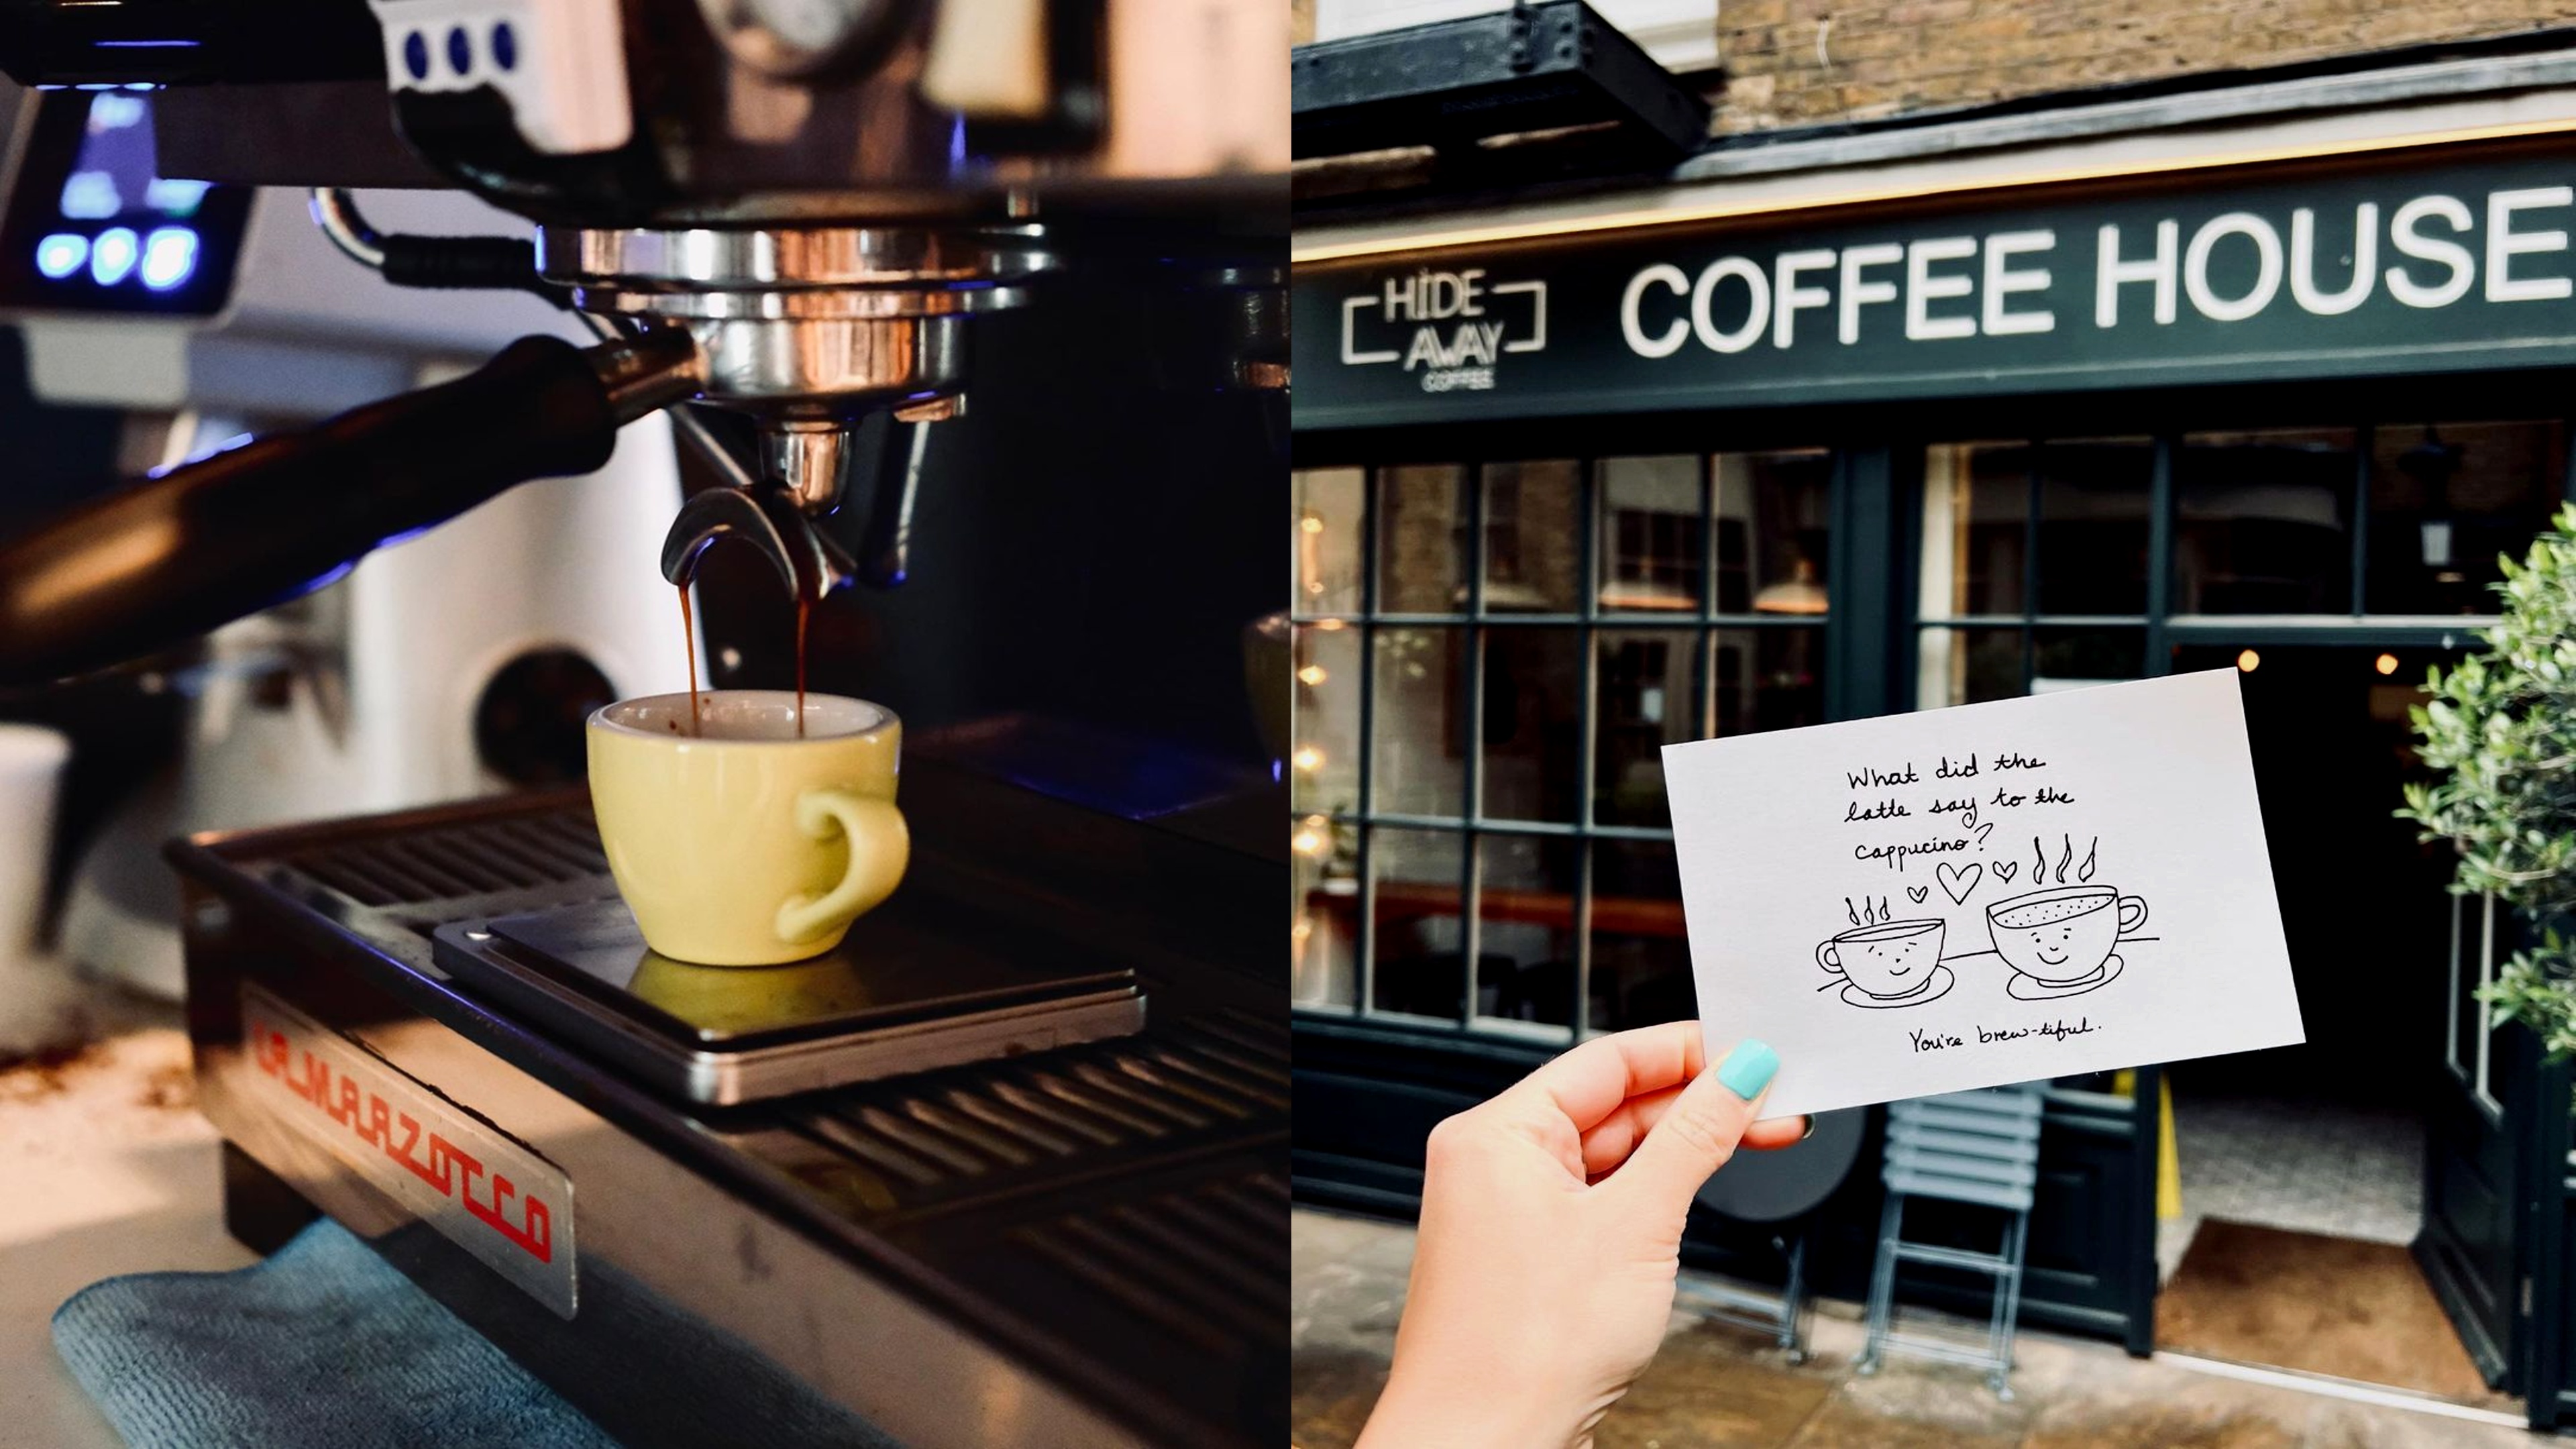 LA MARZOCCO
HIDE
AWAY
COFFEE
COFFEE HOUSE
What did the
latte say to the
cappucino?
You're brew-tiful.